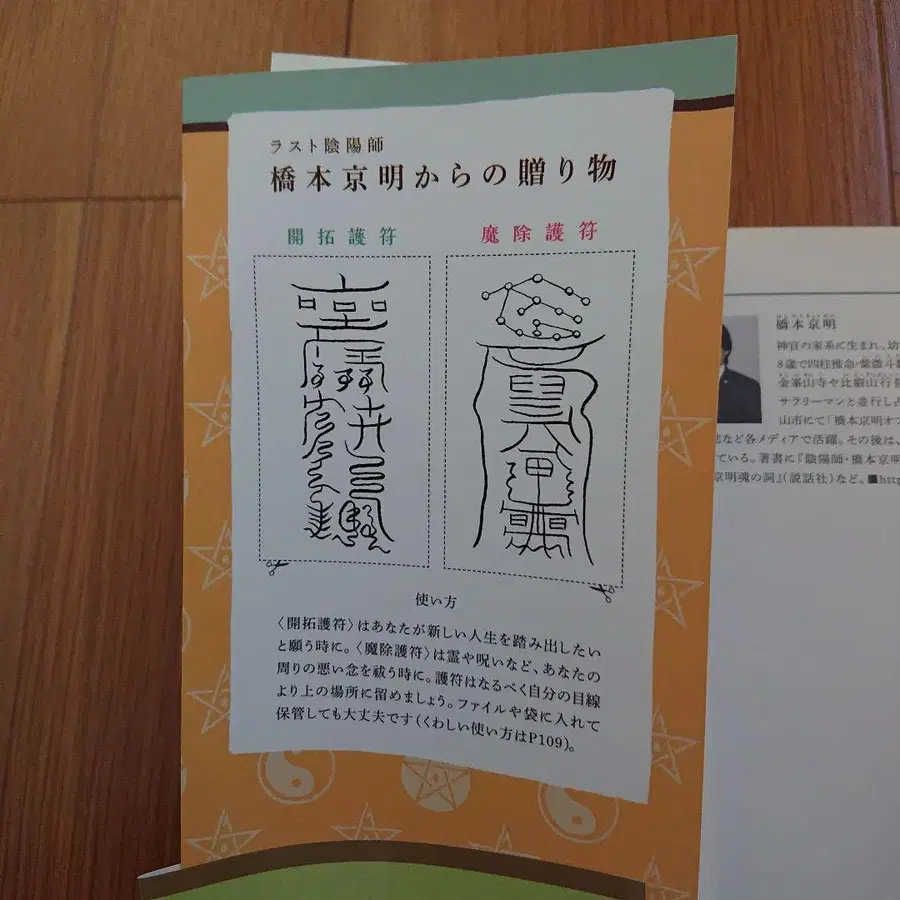 ラスト陰陽師
橋本京明からの贈り物
開拓護符
魔除護符
使い方
〈開拓護符〉はあなたが新しい人生を踏み出したい
と願う時に。〈魔除護符〉は霊や呪いなど、あなたの
周りの悪い念を祓う時に。護符はなるべく自分の目線
より上の場所に留めましょう。ファイルや袋に入れて
保管しても大丈夫です(くわしい使い方はP109)。
橋本京明
神官の家系に生まれ、幼
8歳で四柱推命・紫微斗
金峯山寺や比叡山行
サラリーマンと並行し占
山市にて「橋本京明オフ
など各メディアで活躍。その後は、
ている。著書に『陰陽師・橋本京明
京明魂の詞』(説話社)など。■http